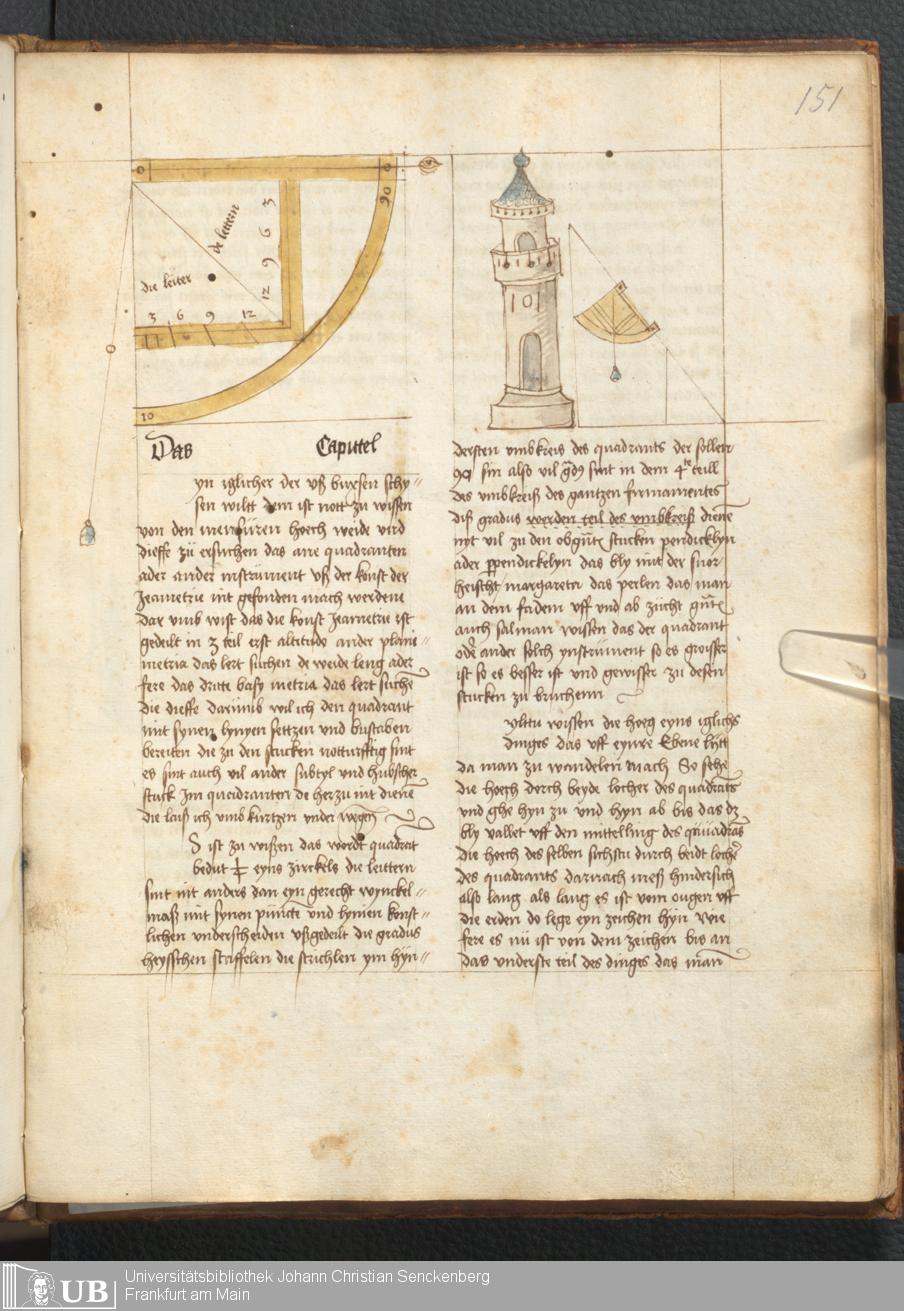 151
90
de lettern
3
6
9
12
die leiter
3 6 9 12
10
Das Capittel
yn iglicher der vß buxsen schy
sen wiltt dem ist nott zu wissen
von den mensuren hoech weide vnd
dieffe zü ersuchen das ane quadranten
ader ander instrüment vß der konst der
Jeametrie nit gefonden mach werdene
dar vmb wist das die konst Jeametrie ist
gedeilt in 3 teil erst altitudo ander plani
metria das lert suchen de weide leng ader
fere das dritte basy metria das lert suche
die dieffe darumb wil ich den quadrant
mit synen lynyen settzen vnd bustaben
bereiten die zu den stucken notturfftig sint
es sint auch vil ander subtyl vnd hubscher
stuck Jm quadranten de herzu nit diene
die laiß ich vmb kurtzen vnder wegen
S ist zu wißen das wordt quadrat
bedut eyns zirckels die leittern
sint nit anders dan eyn gerecht wynckel
maß mit synen püncte vnd lynien konst
lichen vnderscheiden vßgedeilt die gradus
heysschen staffelen die strichlen ym hyn
dersten vmbkreis des quadrants der sollen
90 sin also vil sint in dem 4 teill
des vmbkreiß des gantzen firmamentes
diß gradus werden teil des vmbkreiß diene
nyt vil zu den stucken pendicklyn
ader ppendickelyn das bly mit der snor
heischt margareta das perlen das man
an dem fadem vff vnd ab zücht
auch salman wissen das der quadrant
ode ander solch ynstrüment so es groisser
ist so es besser ist vnd gewisser zu desen
stucken zu bruchenn
yltu wissen die hoeg eyns iglichs
dinges das vff eynre Ebene lytt
da man zu wandelen mach So sehe
die hoech dorch beyde locher des quadrats
vnd ghe hyn zu vnd hyn ab bis das dz
bly vallet vff den mittelling des
die hoech des selben sichstu durch beidt loche
des quadrants darnach meß hindersich
also lang als lang es ist vom ougen vff
die erden do lege eyn zeichen hyn wie
fere es nü ist von dem zeichen bis an
das vnderste teil des dinges das man
UB
Universitätsbibliothek Johann Christian Senckenberg
Frankfurt am Main